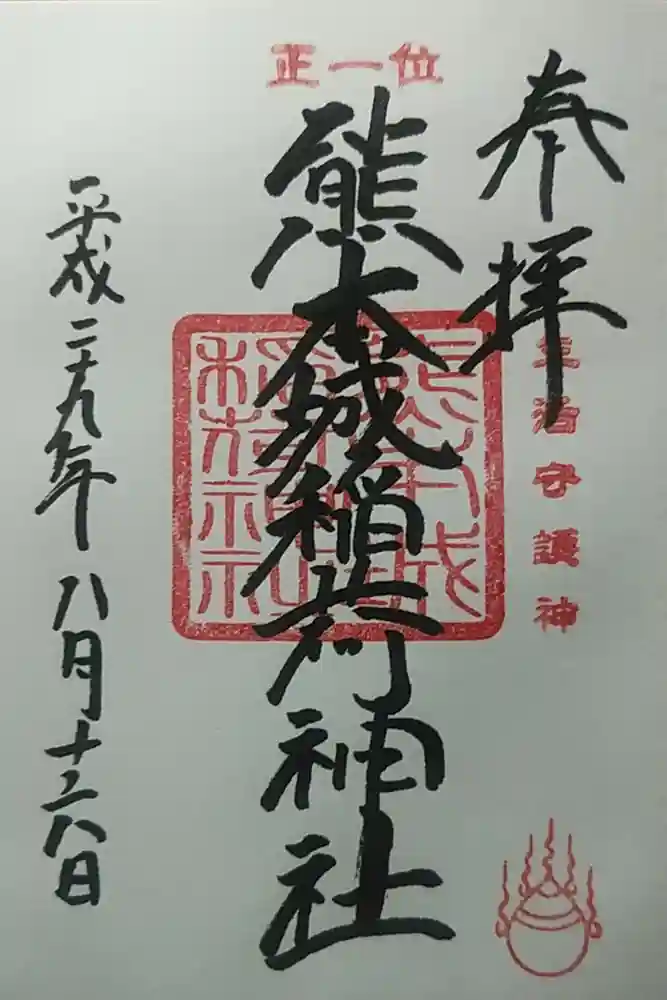 奉拝
治守護神
正一位
熊本城稲荷神社
平成二十九年八月十六日